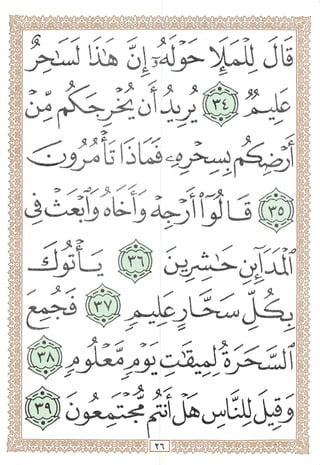 قَالَ لِلْمَلَإِ حَوْلَهُۥٓ إِنَّ هَٰذَا لَسَٰحِرٌ
عَلِيمٌ ٣٤ يُرِيدُ أَن يُخْرِجَكُم مِّنْ
أَرْضِكُم بِسِحْرِهِۦ فَمَاذَا تَأْمُرُونَ
٣٥ قَالُوٓا۟ أَرْجِهْ وَأَخَاهُ وَٱبْعَثْ فِى
ٱلْمَدَآئِنِ حَٰشِرِينَ ٣٦ يَأْتُوكَ
بِكُلِّ سَحَّارٍ عَلِيمٍ ٣٧ فَجُمِعَ
ٱلسَّحَرَةُ لِمِيقَٰتِ يَوْمٍ مَّعْلُومٍ ٣٨
وَقِيلَ لِلنَّاسِ هَلْ أَنتُم مُّجْتَمِعُونَ ٣٩
٢٦